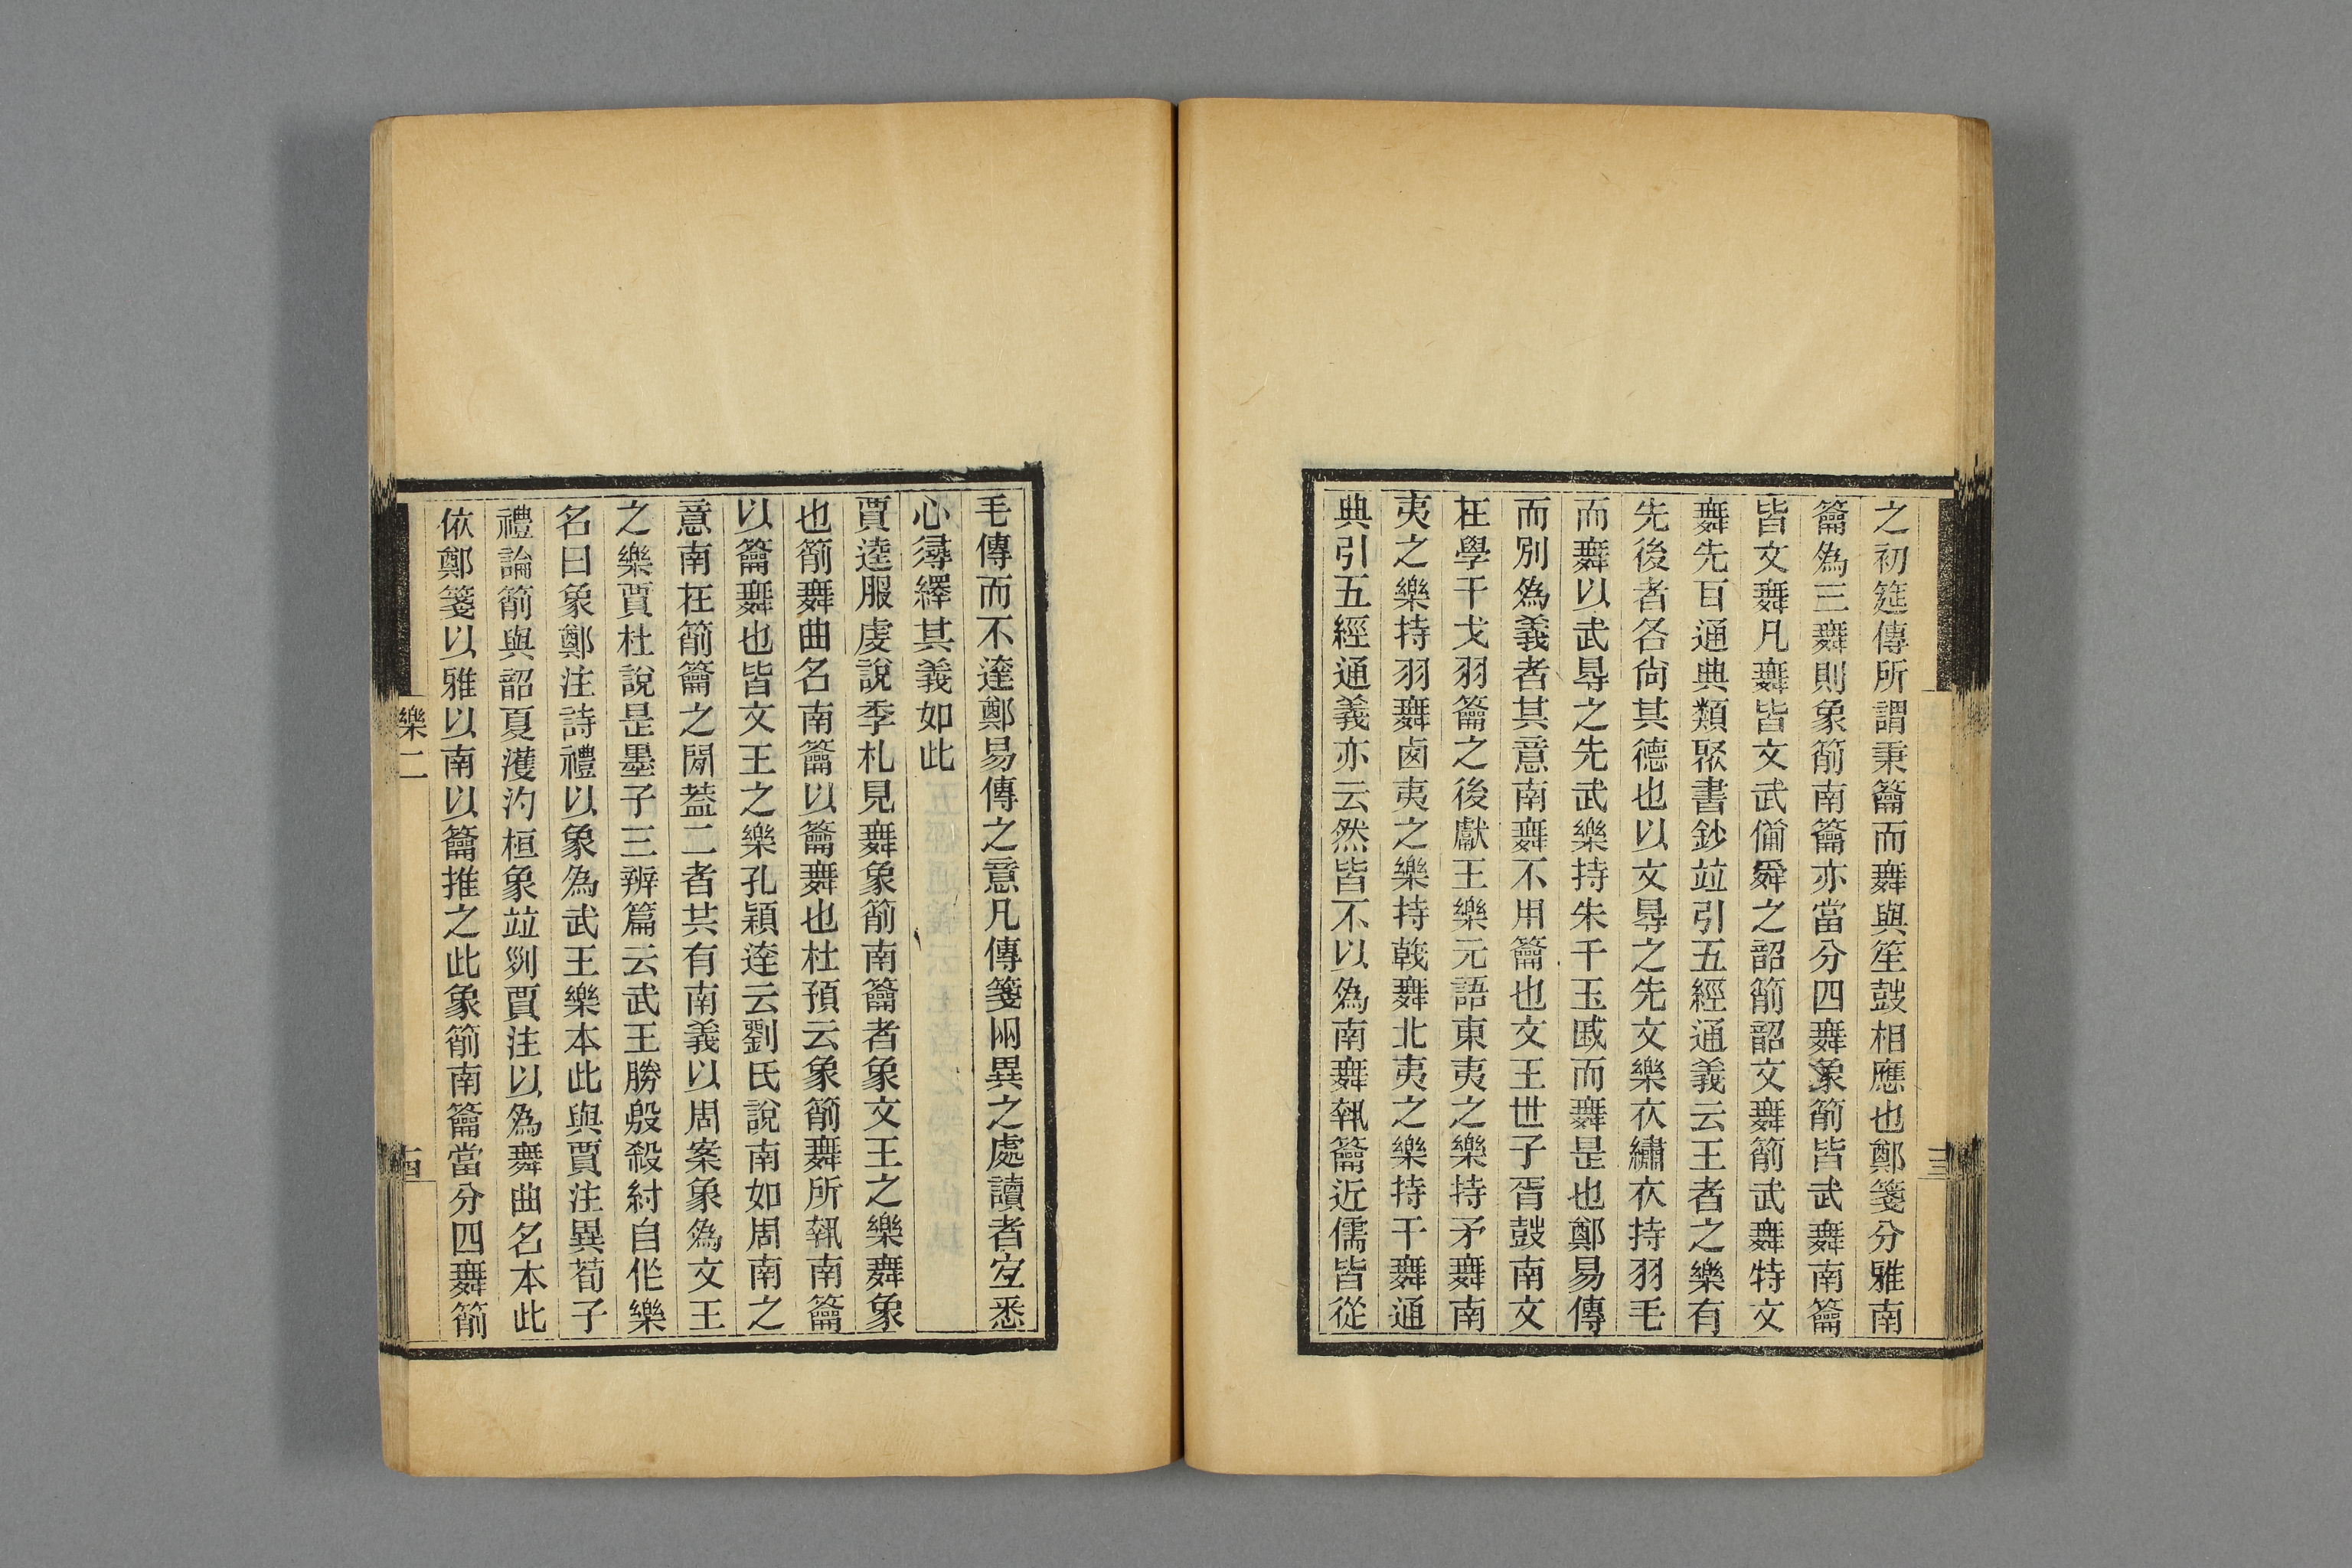 之初筵傳所謂秉籥而舞與笙鼓相應也鄭箋分雅南
籥爲三舞則象箾南籥亦當分四舞象箾皆武舞南籥
皆文舞凡舞皆文武僃舜之韶箾韶文舞箾武舞特文
舞先百通典類聚書鈔竝引五經通義云王者之樂有
先後者各尙其德也以文㝵之先文樂衣繡衣持羽毛
而舞以武㝵之先武樂持朱干玉戚而舞是也鄭易傳
而別爲義者其意南舞不用籥也文王世子胥鼓南文
在學干戈羽籥之後獻王樂元語東夷之樂持矛舞南
夷之樂持羽舞卤夷之樂持戟舞北夷之樂持干舞通
典引五經通義亦云然皆不以爲南舞執籥近儒皆從
三
毛傳而不達鄭易傳之意凡傳箋㒳異之處讀者宐悉
心㝷繹其義如此
賈逵服虔說季札見舞象箾南籥者象文王之樂舞象
也箾舞曲名南籥以籥舞也杜預云象箾舞所執南籥
以籥舞也皆文王之樂孔穎達云劉氏說南如周南之
意南在箾籥之閒葢二者共有南義以周案象爲文王
之樂賈杜說是墨子三辨篇云武王勝殷殺紂自作樂
名曰象鄭注詩禮以象爲武王樂本此與賈注異荀子
禮論箾與韶夏濩汋桓象竝列賈注以爲舞曲名本此
依鄭箋以雅以南以籥推之此象箾南籥當分四舞箾
樂二
四